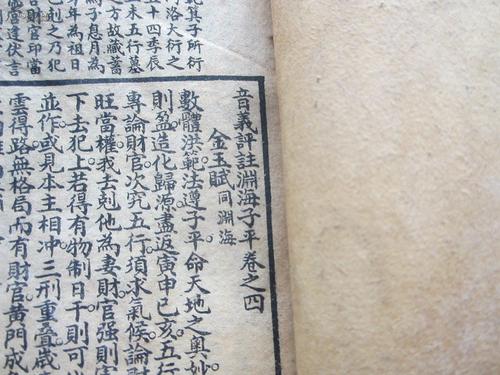 箕子所衍
洛大衍之
五十四季辰
未五行墓
之方故藏蓄
子息月為
年為祖日
剋之乃犯
財官印當
達伏言
音義評註淵海子平卷之四
金玉賦 同淵海
數體洪範法遵子平命天地之奧妙
則盈造化歸源盡返寅申巳亥五行
專論財官次究五行須求氣候論財
旺當權我去剋他為妻財官強則
下去犯上若得有物制日干則可
並作或見本主相冲三刑重疊歲
雲得路無格局而有財官黃門成